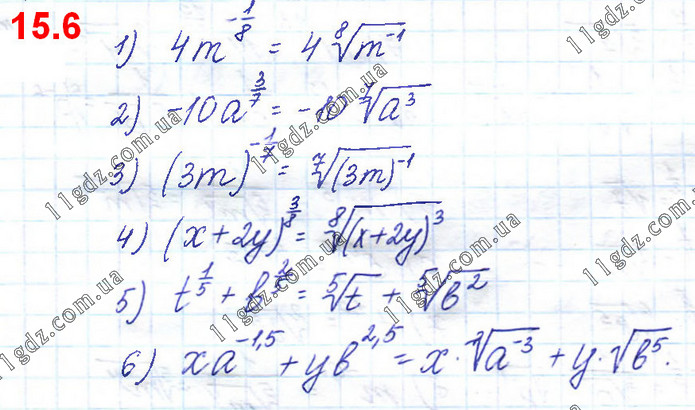 15.6
1) 4m^{-1/8} = 4 \sqrt[8]{m^{-1}}
2) -10a^{3/7} = -10 \sqrt[7]{a^3}
3) (3m)^{-1/7} = \sqrt[7]{(3m)^{-1}}
4) (x+2y)^{3/8} = \sqrt[8]{(x+2y)^3}
5) t^{1/5} + b^{2/5} = \sqrt[5]{t} + \sqrt[5]{b^2}
6) xa^{-1,5} + yb^{2,5} = x·\sqrt[2]{a^{-3}} + y·\sqrt{b^5}.
11gdz.com.ua
11gdz.com.ua
11gdz.com.ua
11gdz.com.ua
11gdz.com.ua
11gdz.com.ua